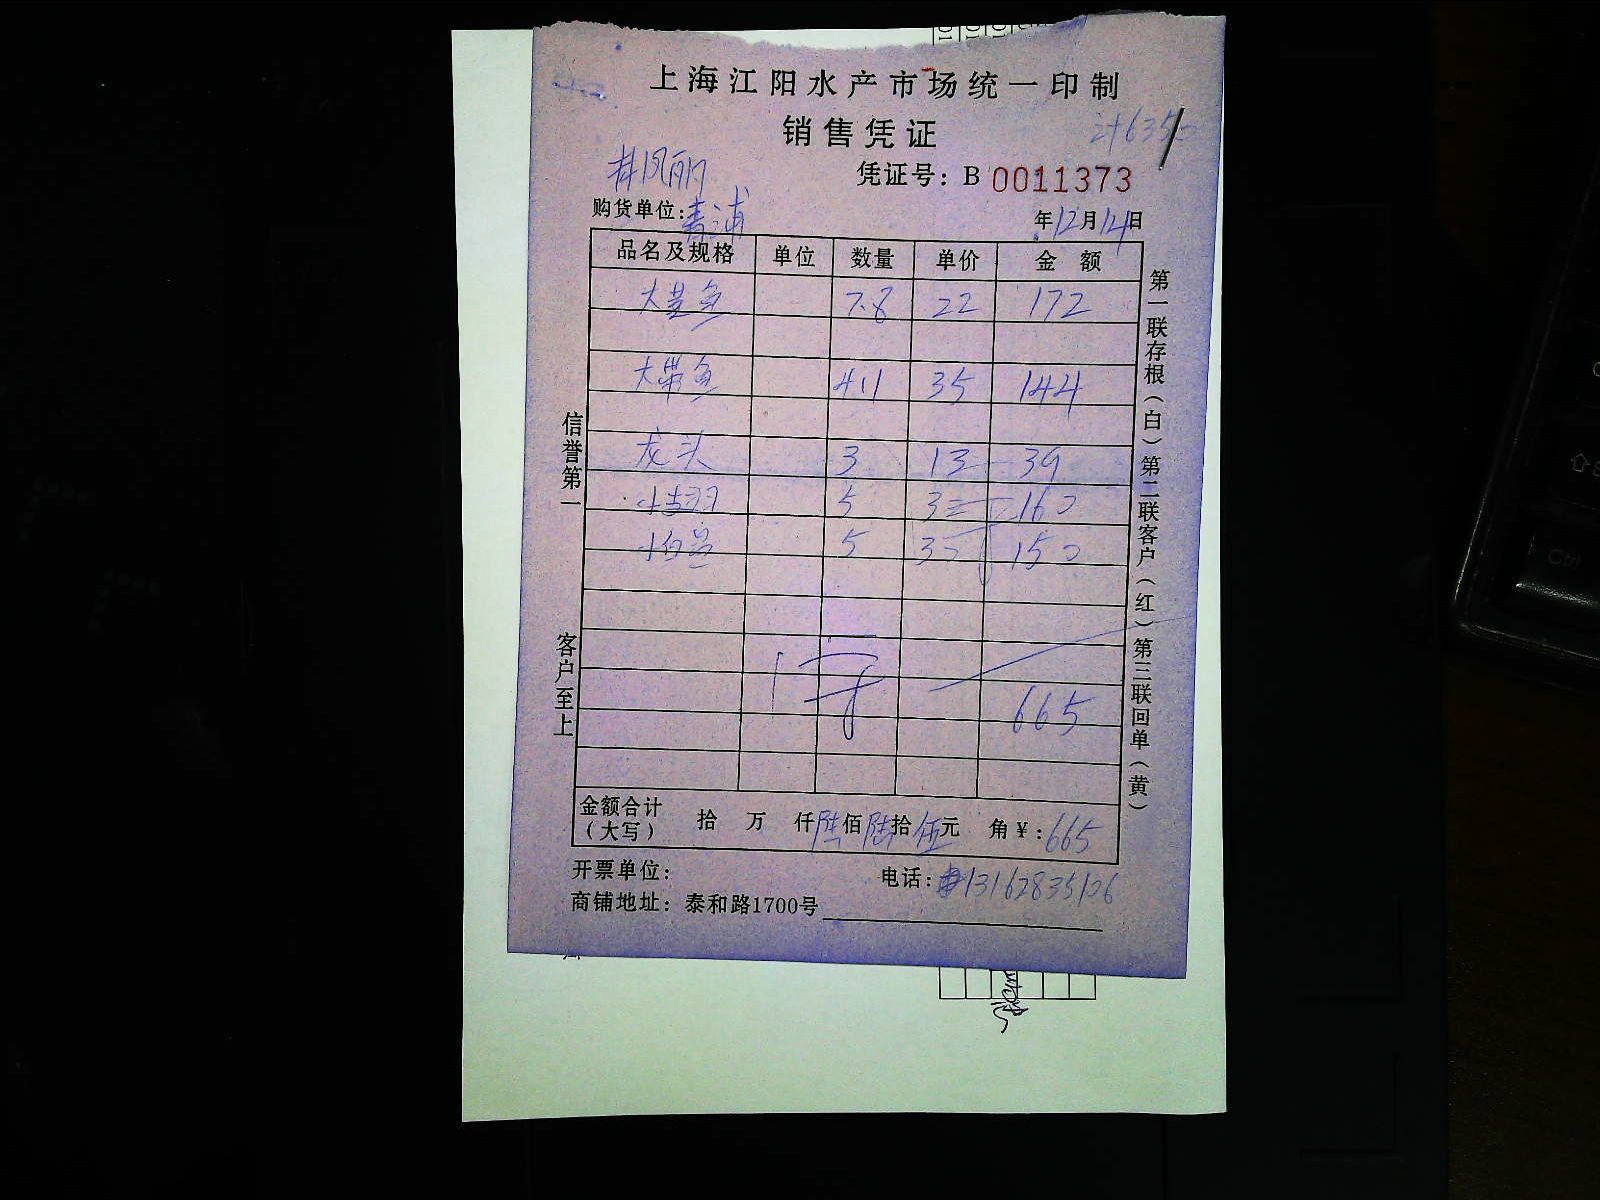 上海江阳水产市场统一印制
销售凭证
凭证号：B 0011373
井凤丽
购货单位：青浦
年12月14日
品名及规格 单位 数量 单价 金 额
大黄鱼 7.8 22 172
大带鱼 411 35 144
龙头 3 13 39
5 160
5 30 150
665
金额合计（大写） 拾 万 仟陆佰陆拾伍元 角￥：665
开票单位：
电话：13162835106
商铺地址：泰和路1700号
信誉第一
客户至上
第一联存根（白）第二联客户（红）第三联回单（黄）
Ctrl